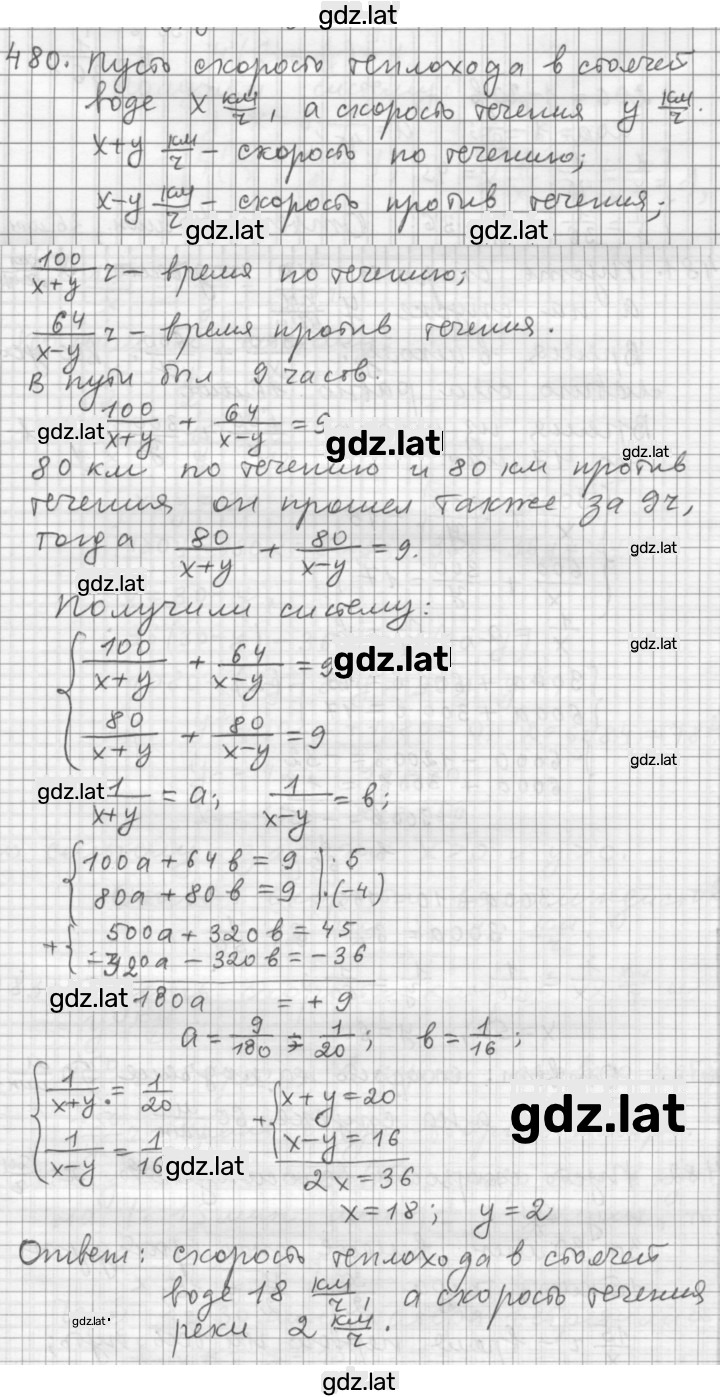 gdz.lat
480. Пусть скорость теплохода в стоячей
воде x км/ч, а скорость течения y км/ч.
x+y км/ч – скорость по течению;
x-y км/ч – скорость против течения;
gdz.lat gdz.lat
100/(x+y) ч – время по течению;
64/(x-y) ч – время против течения.
В пути был 9 часов.
gdz.lat 100/(x+y) + 64/(x-y) = 9 gdz.lat gdz.lat
80 км по течению и 80 км против
течения он прошел также за 9ч,
тогда 80/(x+y) + 80/(x-y) = 9. gdz.lat
gdz.lat
Получили систему:
{ 100/(x+y) + 64/(x-y) = 9 gdz.lat gdz.lat
80/(x+y) + 80/(x-y) = 9
gdz.lat
gdz.lat 1/(x+y) = a; 1/(x-y) = b;
{ 100a + 64b = 9 | · 5
80a + 80b = 9 | · (-4)
+ { 500a + 320b = 45
-320a - 320b = -36
gdz.lat 180a = + 9
a = 9/180 = 1/20; b = 1/16;
{ 1/(x+y) = 1/20 + { x+y = 20 gdz.lat
1/(x-y) = 1/16 x-y = 16
gdz.lat 2x = 36
x = 18; y = 2
Ответ: скорость теплохода в стоячей
воде 18 км/ч, а скорость течения
gdz.lat реки 2 км/ч.
gdz.lat